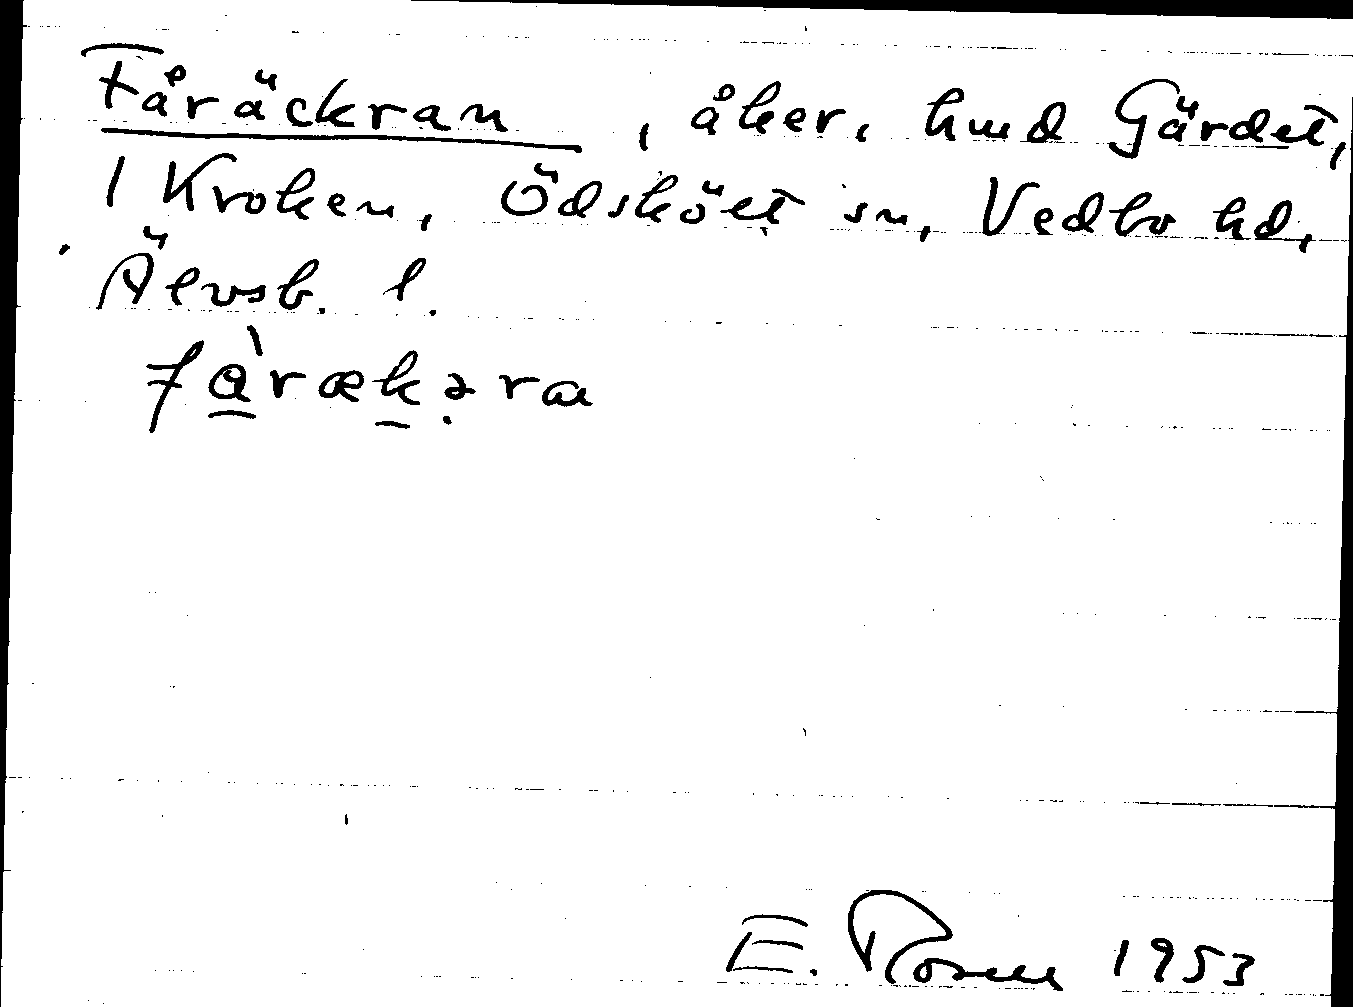 Fåräckran, åker, hmd Gärdet,
1 Kroken, Ödsköet sn, Vedbo hd,
Älvsb. l.
fàrækəra
E. Rosell 1953